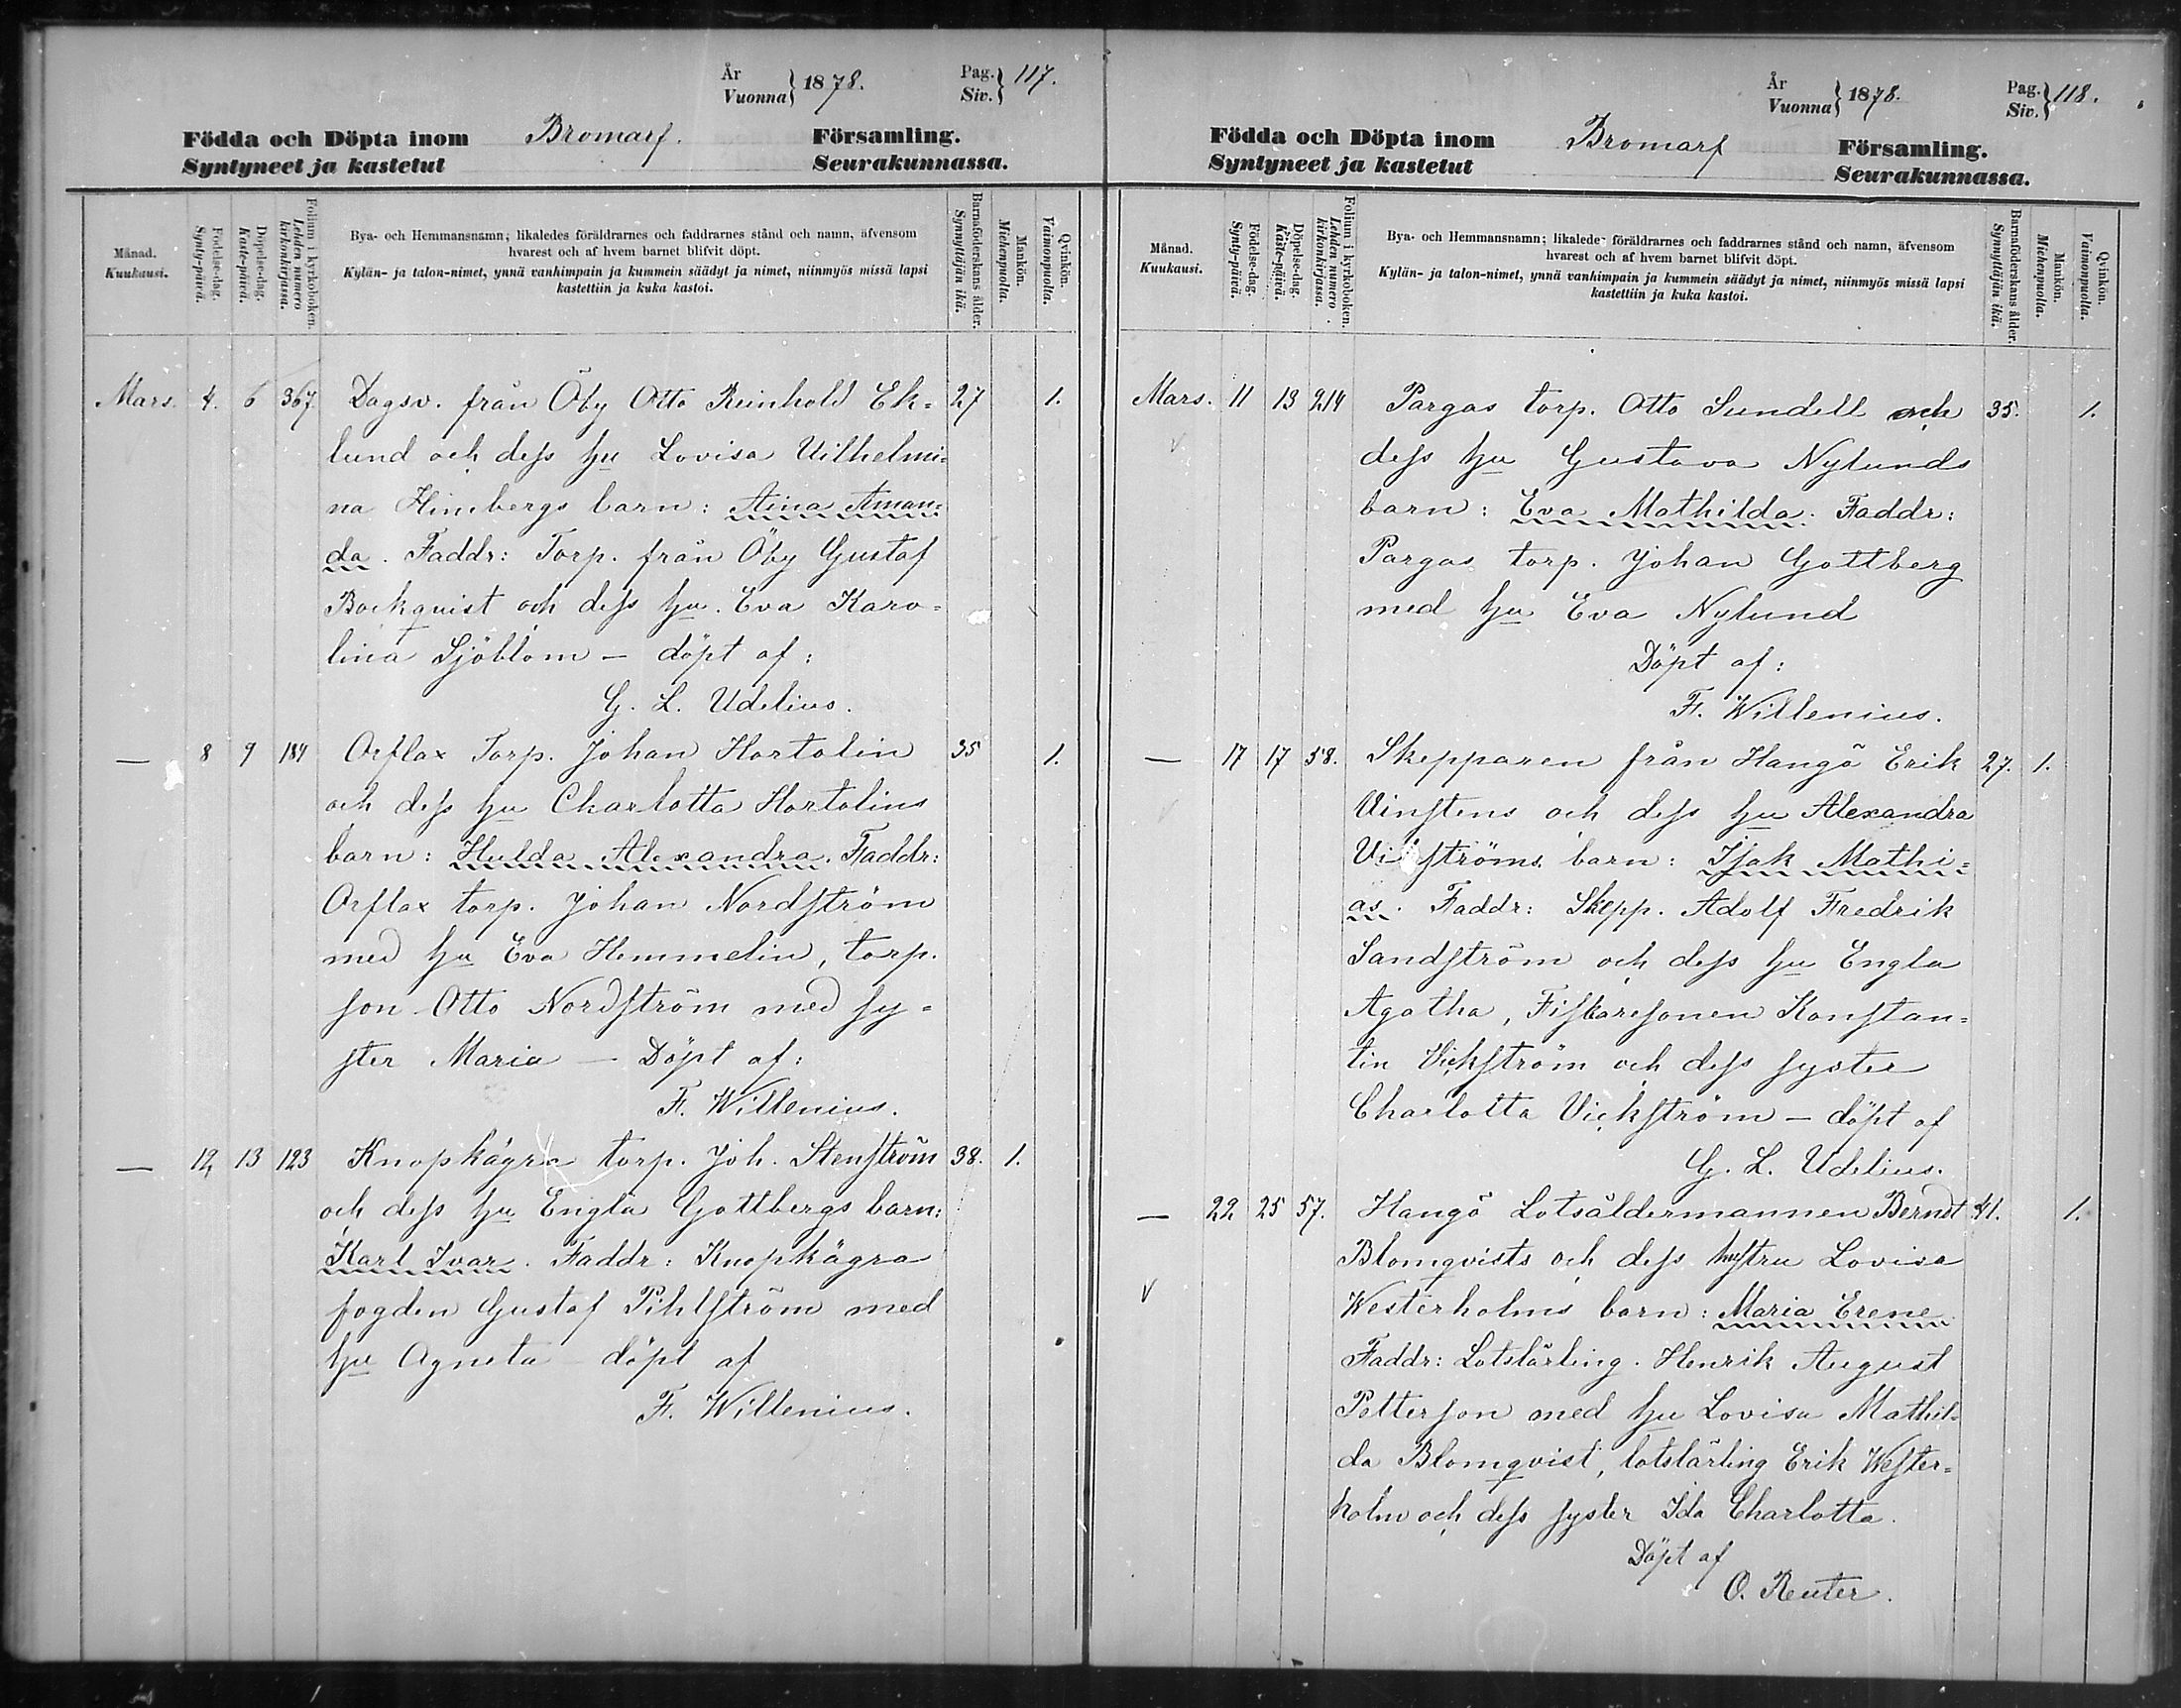 År
Vuonna } 1878.
Pag.
Siv. } 117.
Födda och Döpta inom Bromarf. Församling.
Syntyneet ja kastetut Seurakunnassa.
Månad.
Kuukausi.
Födelse-dag.
Synty-päivä.
Döpelse-dag.
Kaste-päivä.
Folium i kyrkoboken.
Lehden numero
kirkonkirjassa.
Bya- och Hemmansnamn; likaledes föräldrarnes och faddrarnes stånd och namn, äfvensom
hvarest och af hvem barnet blifvit döpt.
Kylän- ja talon-nimet, ynnä vanhimpain ja kummein säädyt ja nimet, niinmyös missä lapsi
kastettiin ja kuka kastoi.
Barnaföderskans ålder.
Synnyttäjän ikä.
Mankön.
Miehenpuolta.
Qvinkön.
Vaimonpuolta.
Mars. 4. 6 367. Dagsv. från Öby Otto Reinhold Ek= 27 1.
lund och dess hu Lovisa Vilhelmi=
na Hinebergs barn: Aina Aman=
da. Faddr: Torp. från Öby Gustaf
Bockquist och dess hu. Eva Karo=
lina Sjöblom — döpt af:
G. L. Udelius.
— 8 9 184 Orflax Torp. Johan Hortolin 35 1.
och dess hu Charlotta Hortolins
barn: Hulda Alexandra. Faddr:
Orflax torp. Johan Nordström
med hu Eva Hemmelin, torp.
son Otto Nordström med sy=
ster Maria — Döpt af:
F. Willenius.
— 12, 13 123 Knopkägra torp. Joh. Stenström 38. 1.
och dess hu Engla Gottbergs barn:
Karl Ivar. Faddr: Knopkägra
fogden Gustaf Pihlström med
hu Agneta — döpt af
F. Willenius.
År
Vuonna } 1878.
Pag.
Siv. } 118.
Födda och Döpta inom Bromarf Församling.
Syntyneet ja kastetut Seurakunnassa.
Månad.
Kuukausi.
Födelse-dag.
Synty-päivä.
Döpelse-dag.
Kaste-päivä.
Folium i kyrkoboken.
Lehden numero
kirkonkirjassa.
Bya- och Hemmansnamn; likaledes föräldrarnes och faddrarnes stånd och namn, äfvensom
hvarest och af hvem barnet blifvit döpt.
Kylän- ja talon-nimet, ynnä vanhimpain ja kummein säädyt ja nimet, niinmyös missä lapsi
kastettiin ja kuka kastoi.
Barnaföderskans ålder.
Synnyttäjän ikä.
Mankön.
Miehenpuolta.
Qvinkön.
Vaimonpuolta.
Mars. 11 13 214 Pargas torp. Otto Sundell och 35. 1.
dess hu Gustava Nylunds
barn: Eva Mathilda. Faddr:
Pargas torp. Johan Gottberg
med hu Eva Nylund
Döpt af:
F. Willenius.
— 17 17 58. Skepparen från Hangö Erik 27. 1.
Vinstens och dess hu Alexandra
barn: Isak Mathi=
as. Faddr: Skepp. Adolf Fredrik
Sandström och dess hu Engla
Agatha, Fiskaresonen Konstan=
tin Vickström och dess syster
Charlotta Vickström — döpt af
G. L. Udelius.
— 22 25 57. Hangö Lotsåldermannen Berndt 41. 1.
Blomqvists och dess hustru Lovisa
Westerholms barn: Maria Erene
Faddr: Lotslärling. Henrik August
Petterson med hu Lovisa Mathil=
da Blomqvist, lotslärling Erik Wester=
holm och dess syster Ida Charlotta.
Döpt af
O. Reuter.